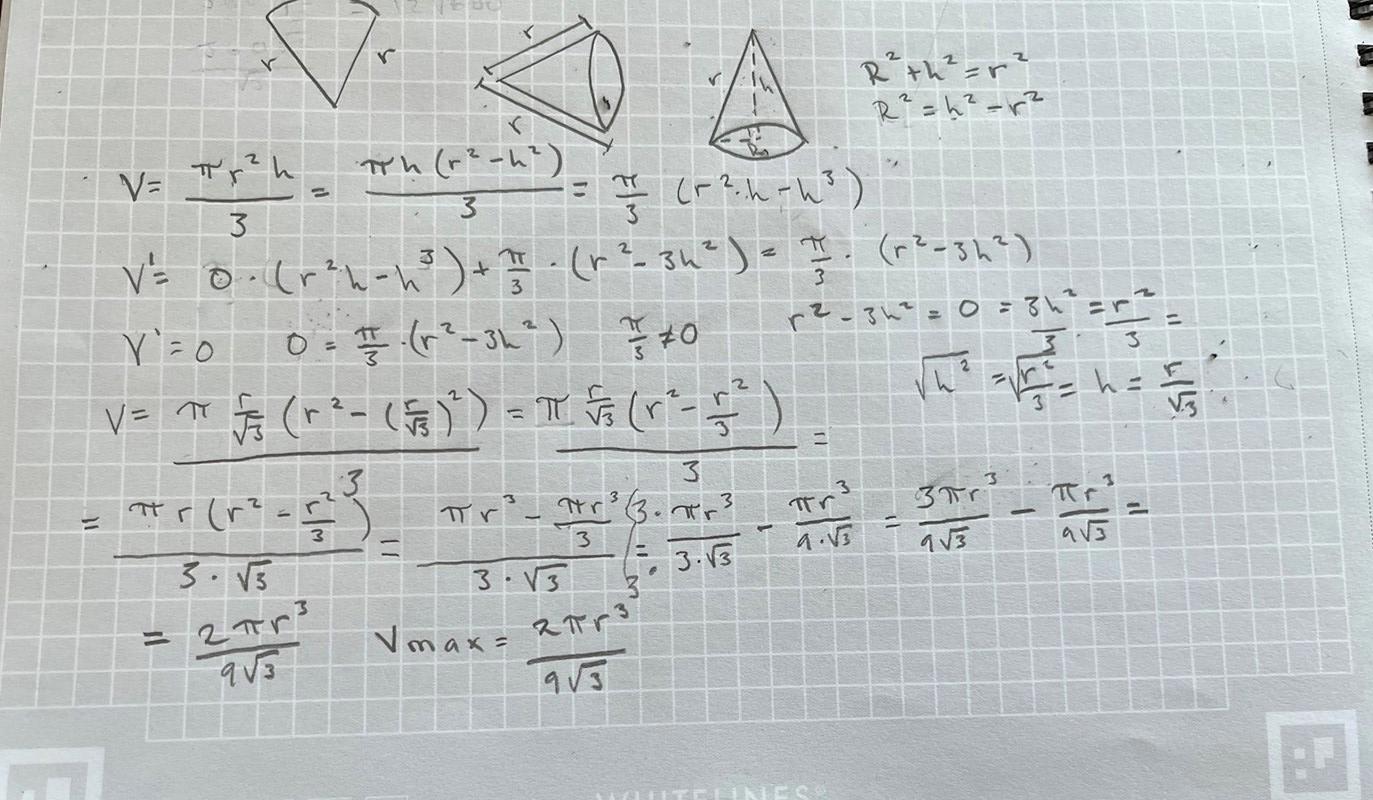 r r
r
r
r h
R
R² + h² = r²
R² = h² - r²
V = πr²h/3 = πh(r² - h²)/3 = π/3 (r²·h - h³)
V' = 0·(r²h - h³) + π/3·(r² - 3h²) = π/3·(r² - 3h²)
V' = 0 0 = π/3·(r² - 3h²) π/3 ≠ 0 r² - 3h² = 0 = 3h²/3 = r²/3 =
√h² = √r²/3 = h = r/√3
V = π r/√3 (r² - (r/√3)²)/3 = π r/√3 (r² - r²/3)/3 =
= πr(r² - r²/3)/3·√3 = πr³ - πr³/3/3·√3 = 3·πr³/3·3·√3 - πr³/9·√3 = 3πr³/9√3 - πr³/9√3 =
= 2πr³/9√3 Vmax = 2πr³/9√3
WHITELINES®